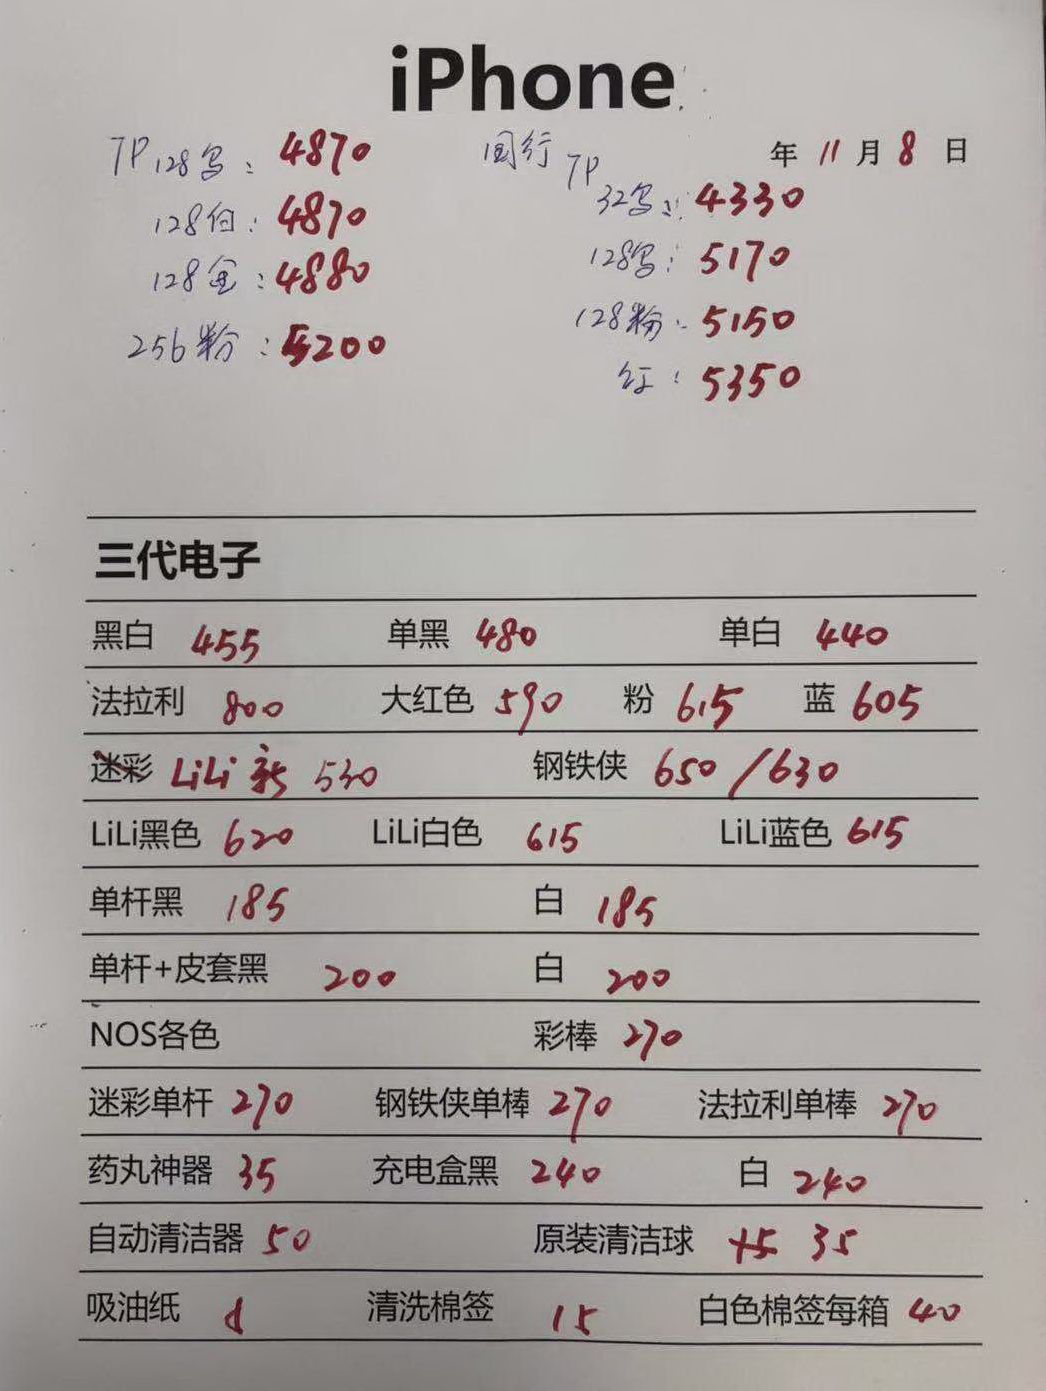 iPhone
7P 128乌: 4870 国行 7P 年 11 月 8 日
32乌: 4330
128白: 4870
128乌: 5170
128金: 4880
128粉: 5150
256粉: 5200
红: 5350
三代电子
黑白 455 单黑 480 单白 440
法拉利 800 大红色 590 粉 615 蓝 605
迷彩 LiLi 新 530 钢铁侠 650 / 630
LiLi黑色 620 LiLi白色 615 LiLi蓝色 615
单杆黑 185 白 185
单杆+皮套黑 200 白 200
NOS各色 彩棒 270
迷彩单杆 270 钢铁侠单棒 270 法拉利单棒 270
药丸神器 35 充电盒黑 240 白 240
自动清洁器 50 原装清洁球 35
吸油纸 清洗棉签 15 白色棉签每箱 40